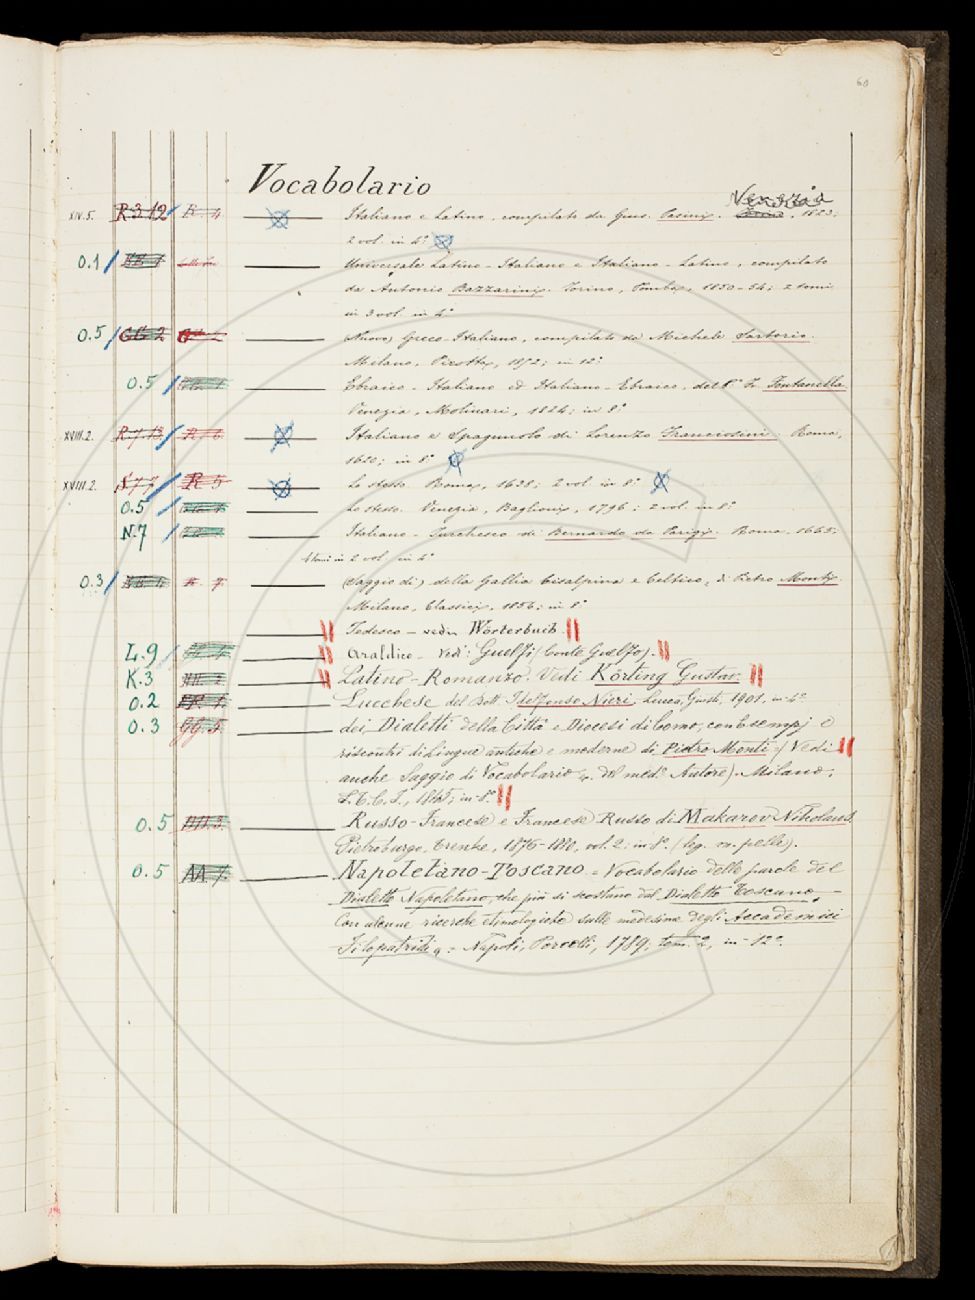 60
Vocabolario
Venezia
XIV.5. R.3.12 Italiano e Latino, compilato da Gius. Pasini. 1823.
2 vol. in 4º
0.1 Universale Latino-Italiano e Italiano-Latino, compilato
da Antonio Bazzarini. Torino, Pomba, 1850-54; 2 tomi
in 3 vol. in 4º
0.5 GG 2 (Nuovo) Greco-Italiano, compilato da Michele Sartorio.
Milano, 1872; in 12º
0.5 Ebraico-Italiano ed Italiano-Ebraico, Fontanella
Venezia, Molinari, 1824; in 8º
XVIII.2. R.7.13 Italiano e Spagnuolo di Lorenzo Franciosini. Roma,
1620; in 8º
XVIII.2. R 5 Lo stesso. Roma, 1638; 2 vol. in 8º
0.5 Lo stesso. Venezia, Baglioni, 1796; 2 vol. in 8º
N.7 Italiano-Turchesco di Bernardo da Parigi. Roma, 1665;
4 tomi in 2 vol. in 4º
0.3 (Saggio di) della Gallia Cisalpina e Celtico, di Pietro Monti
Milano, Classici, 1856; in 8º
Tedesco – vedi Wörterbuch.
L.9 Araldico. Vedi: Guelfi (Conte Guelfo).
K.3 Latino-Romanzo. Vedi Körting Gustav.
0.2 Lucchese del Dott. Idelfonso Nieri. Lucca, Giusti, 1901, in 4º
0.3 GG.5. dei Dialetti della Città e Diocesi di Como, con esempj e
riscontri di lingue antiche e moderne di Pietro Monti (Vedi
anche Saggio di Vocabolario del med.º Autore). Milano,
1845; in-8º
0.5 Russo-Francese e Francese Russo di Makarov Nikolaus.
Pietroburgo, Trenke, 1876-1880, vol. 2: in 8º. (leg. in pelle).
0.5 AA.7. Napoletano-Toscano = Vocabolario delle parole del
Dialetto Napoletano, che più si scostano dal Dialetto Toscano,
Con alcune ricerche etimologiche sulle medesime degli Accademici
Filopatridi = Napoli, Porcelli, 1789; tom. 2, in-12º.